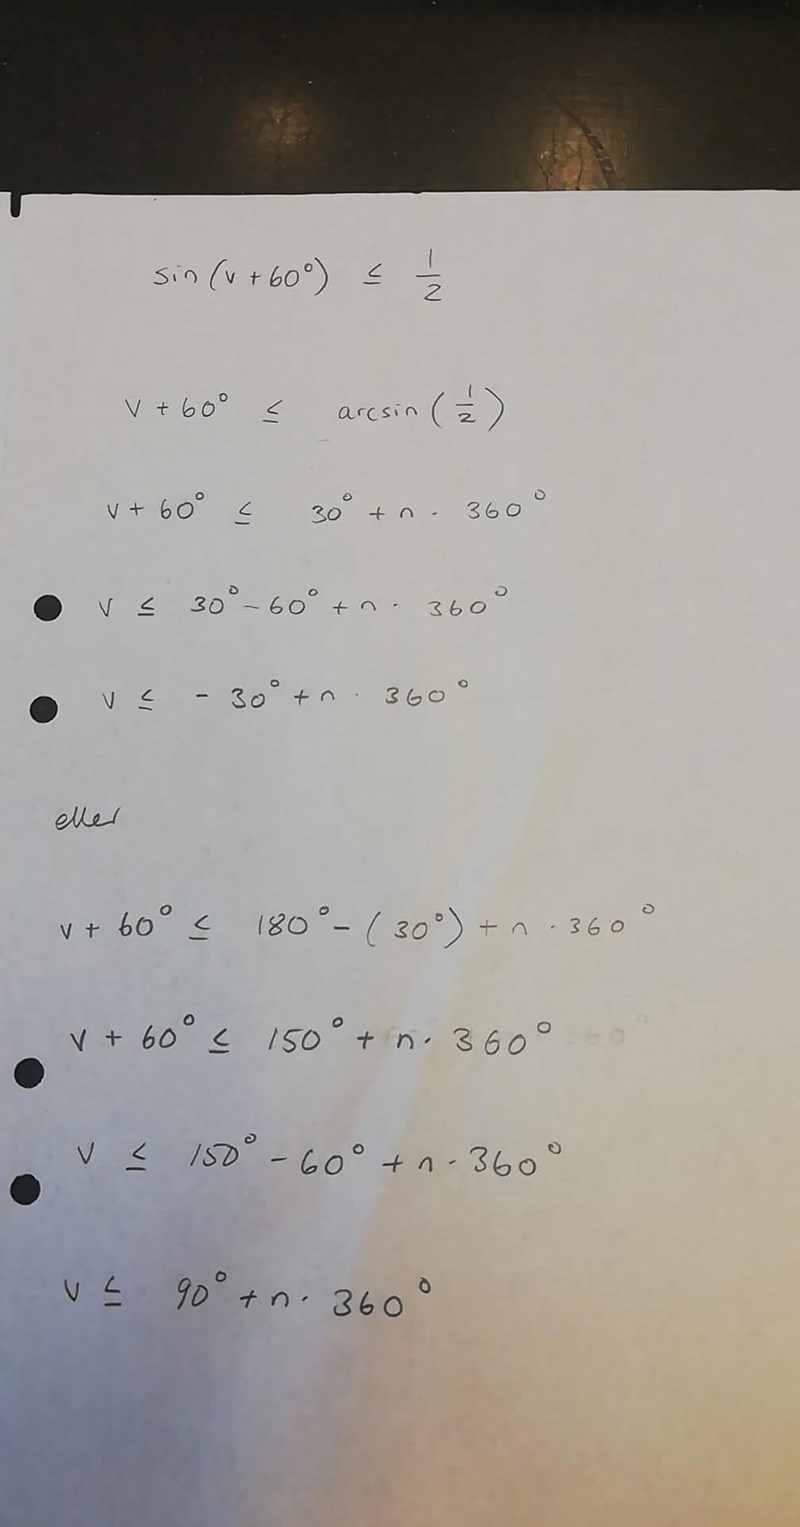 sin(v + 60°) ≤ 1/2
v + 60° ≤ arcsin(1/2)
v + 60° ≤ 30° + n · 360°
v ≤ 30° - 60° + n · 360°
v ≤ - 30° + n · 360°
eller
v + 60° ≤ 180° - (30°) + n · 360°
v + 60° ≤ 150° + n · 360°
v ≤ 150° - 60° + n · 360°
v ≤ 90° + n · 360°